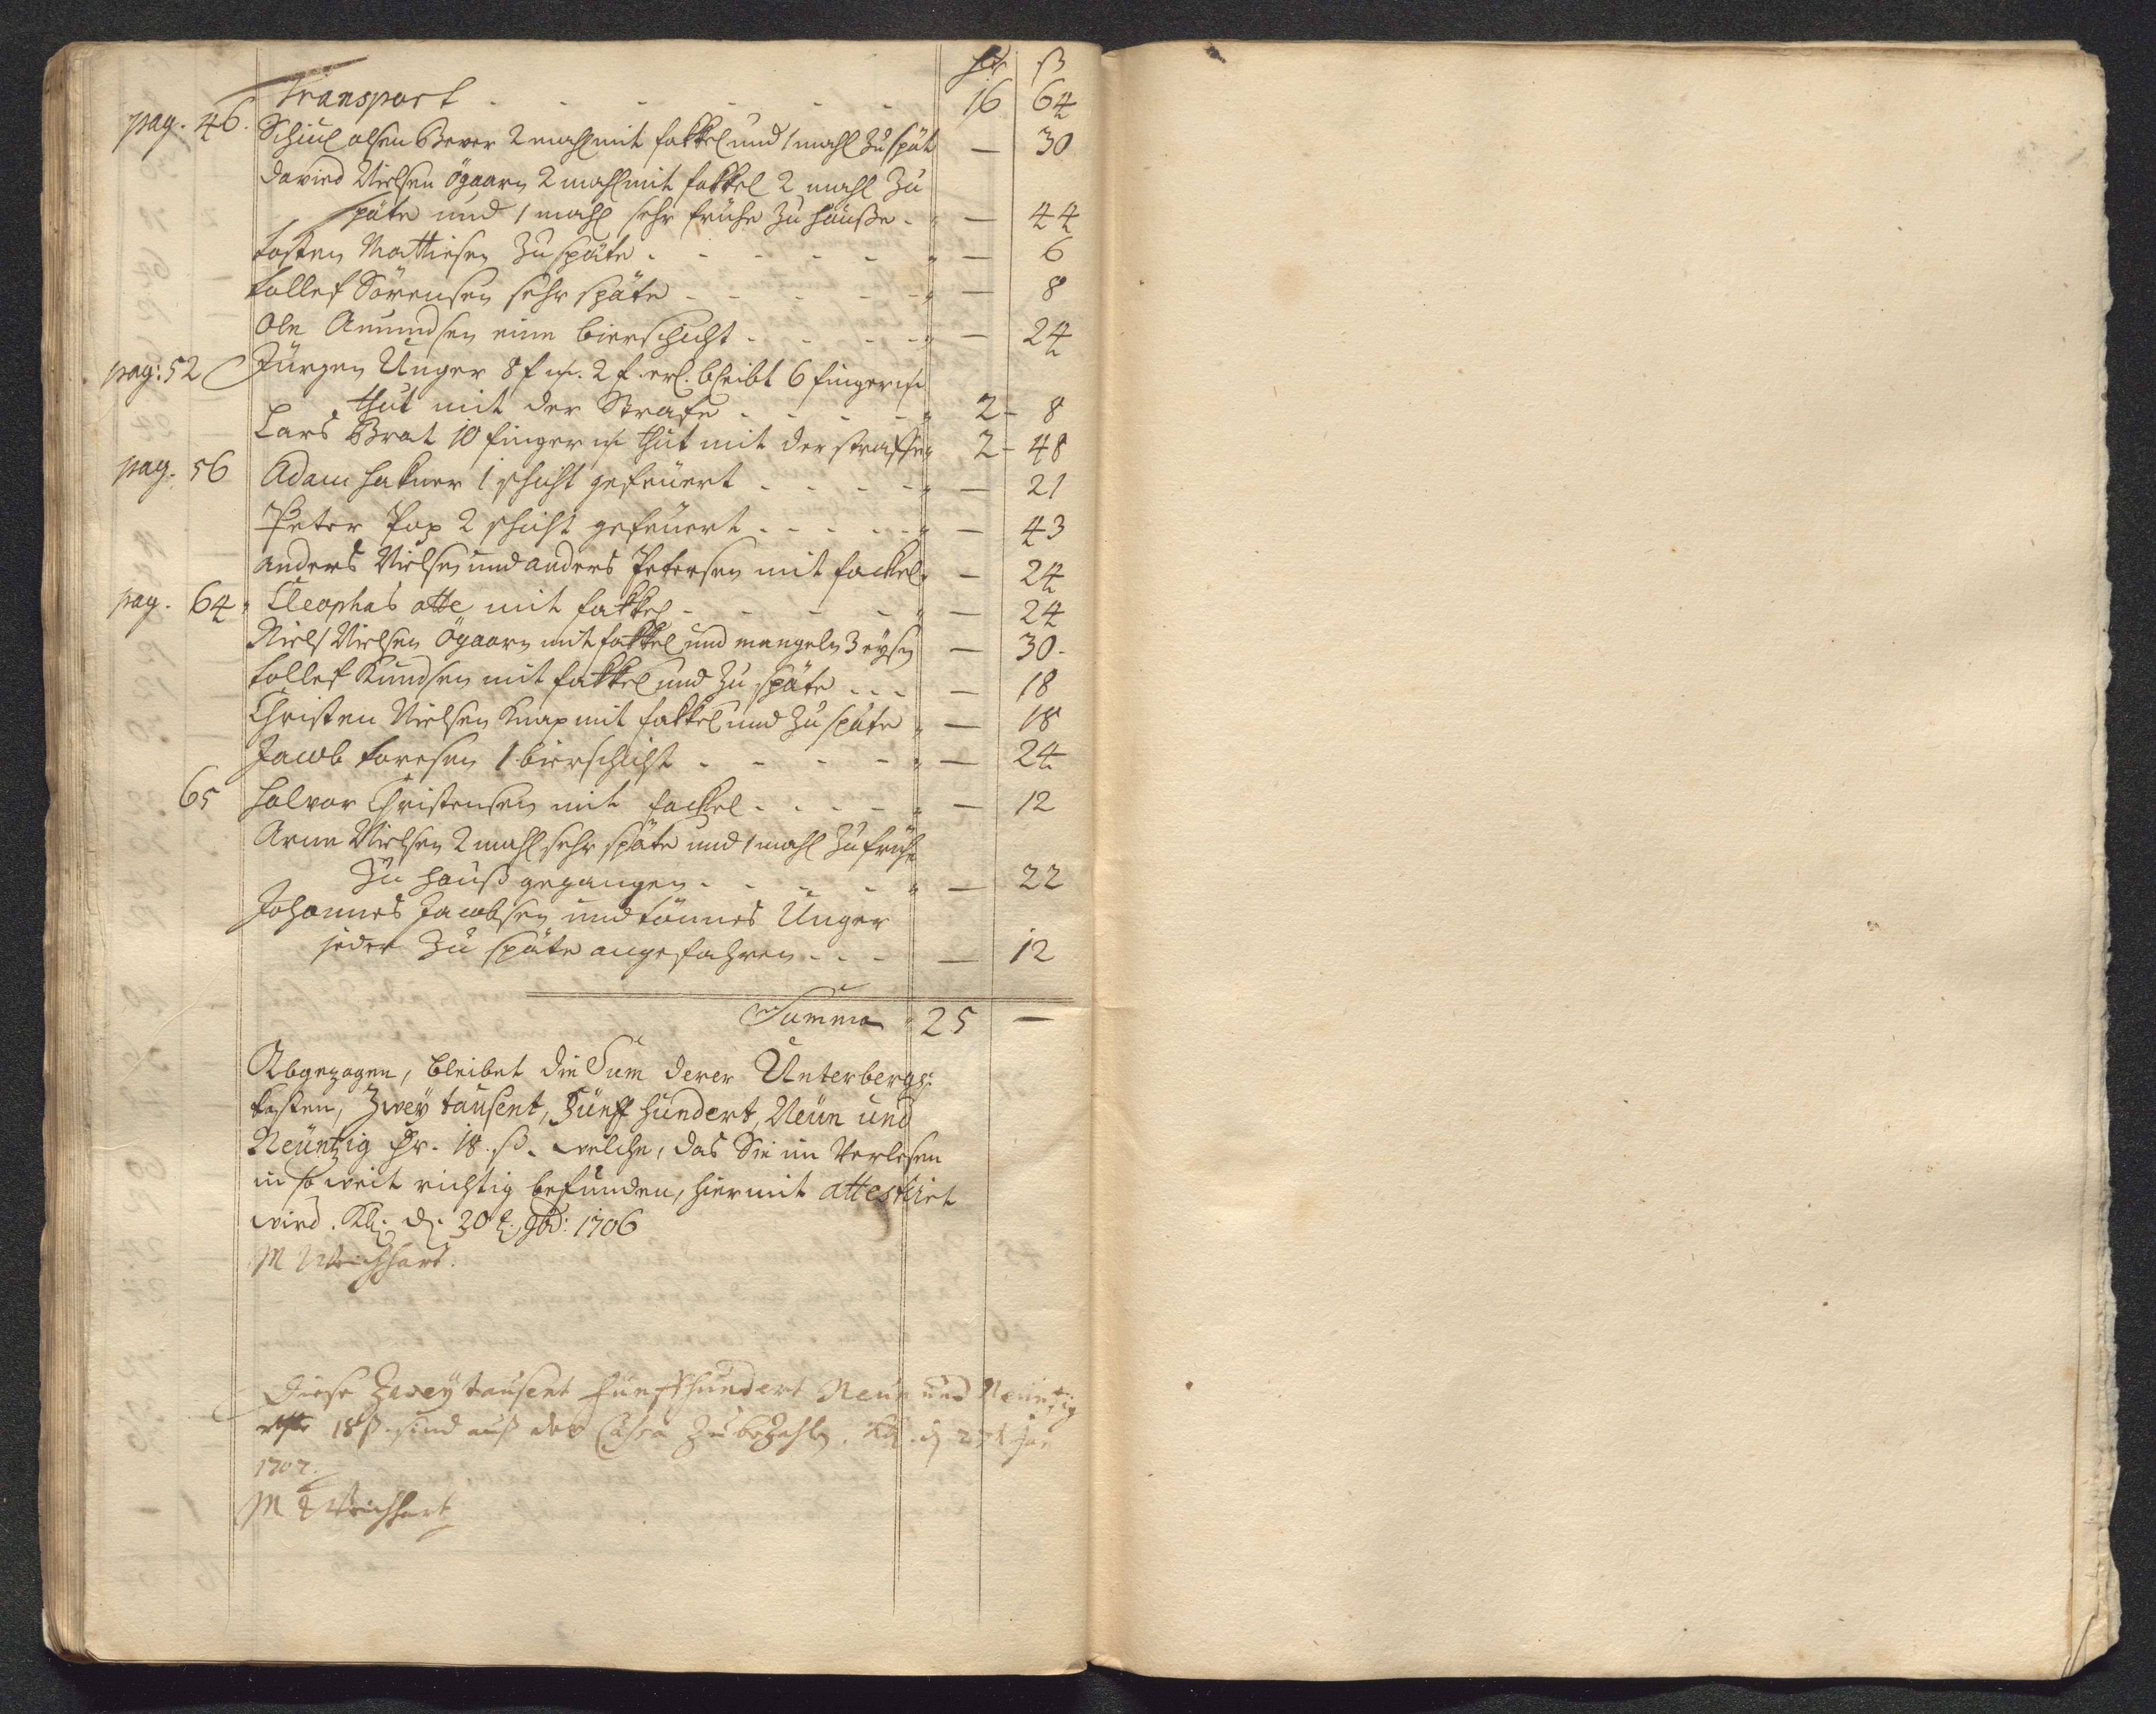 hr ß
Transport - - - - - - 16 64
pag. 46. Schiul olsen Bever 2 mahl mit fakkel und 1 mahl Zu spät — 30
David Nielsen Ögaarn 2 mahl mit fakkel 2 mahl Zu
späte und 1 mahl sehr frühe Zu hauße - — 44
tosten Mattiesen Zu späte - - - - - — 6
tollef Sörensen sehr späte - - - - - — 8
Ole Amundsen eine bierschicht - - - - — 24
pag: 52 Jürgen Unger 8 f 2 f. erl. bleibt 6 finger
thut mit der Strafe - - - - 2 - 8
Lars Brat 10 finger thut mit der straffe 2 - 48
pag. 56 Adam hakner 1 schicht gefeüert - - - - — 21
Peter Pop 2 schicht gefeüert - - - - - — 43
anders Nielsen und anders Petersen mit fackel — 24
pag. 64 Cleophas otte mit fakkel - - - - — 24
Niels Nielsen Ögaarn mit fakkel und mangeln 3 eysen — 30.
tollef Knudsen mit fakkel und Zu späte - - - — 18
Christen Nielsen Knap mit fakkel und Zu späte — 18
Jacob toresen 1 bierschicht - - - - — 24
65 halvor Christensen mit fackel - - - - — 12
Arne Nielsen 2 mahl sehr späte und 1 mahl Zu frühe
Zu hauß gegangen - - - - — 22
Johannes Jacobsen und tönnes Unger
jeder Zu späte angefahren - - - — 12
Summa 25 —
Abgezogen, bleibet die Sum derer Unterbergs:
kosten, Zwey tausent, Fünff hundert, Neün und
Neüntzig hr. 18. ß. welche, das Sie im Verlesen
in so weit richtig befunden, hiermit attestiret
wird. Kb. d. 30 t. 9br: 1706
M Weichhart.
Diese Zwey tausent Fünffhundert Neün und Neüntzig
18 ß. sind auß der Cassa Zu bezahlen. Kb. d 27t Jan
1707.
M Weichhart